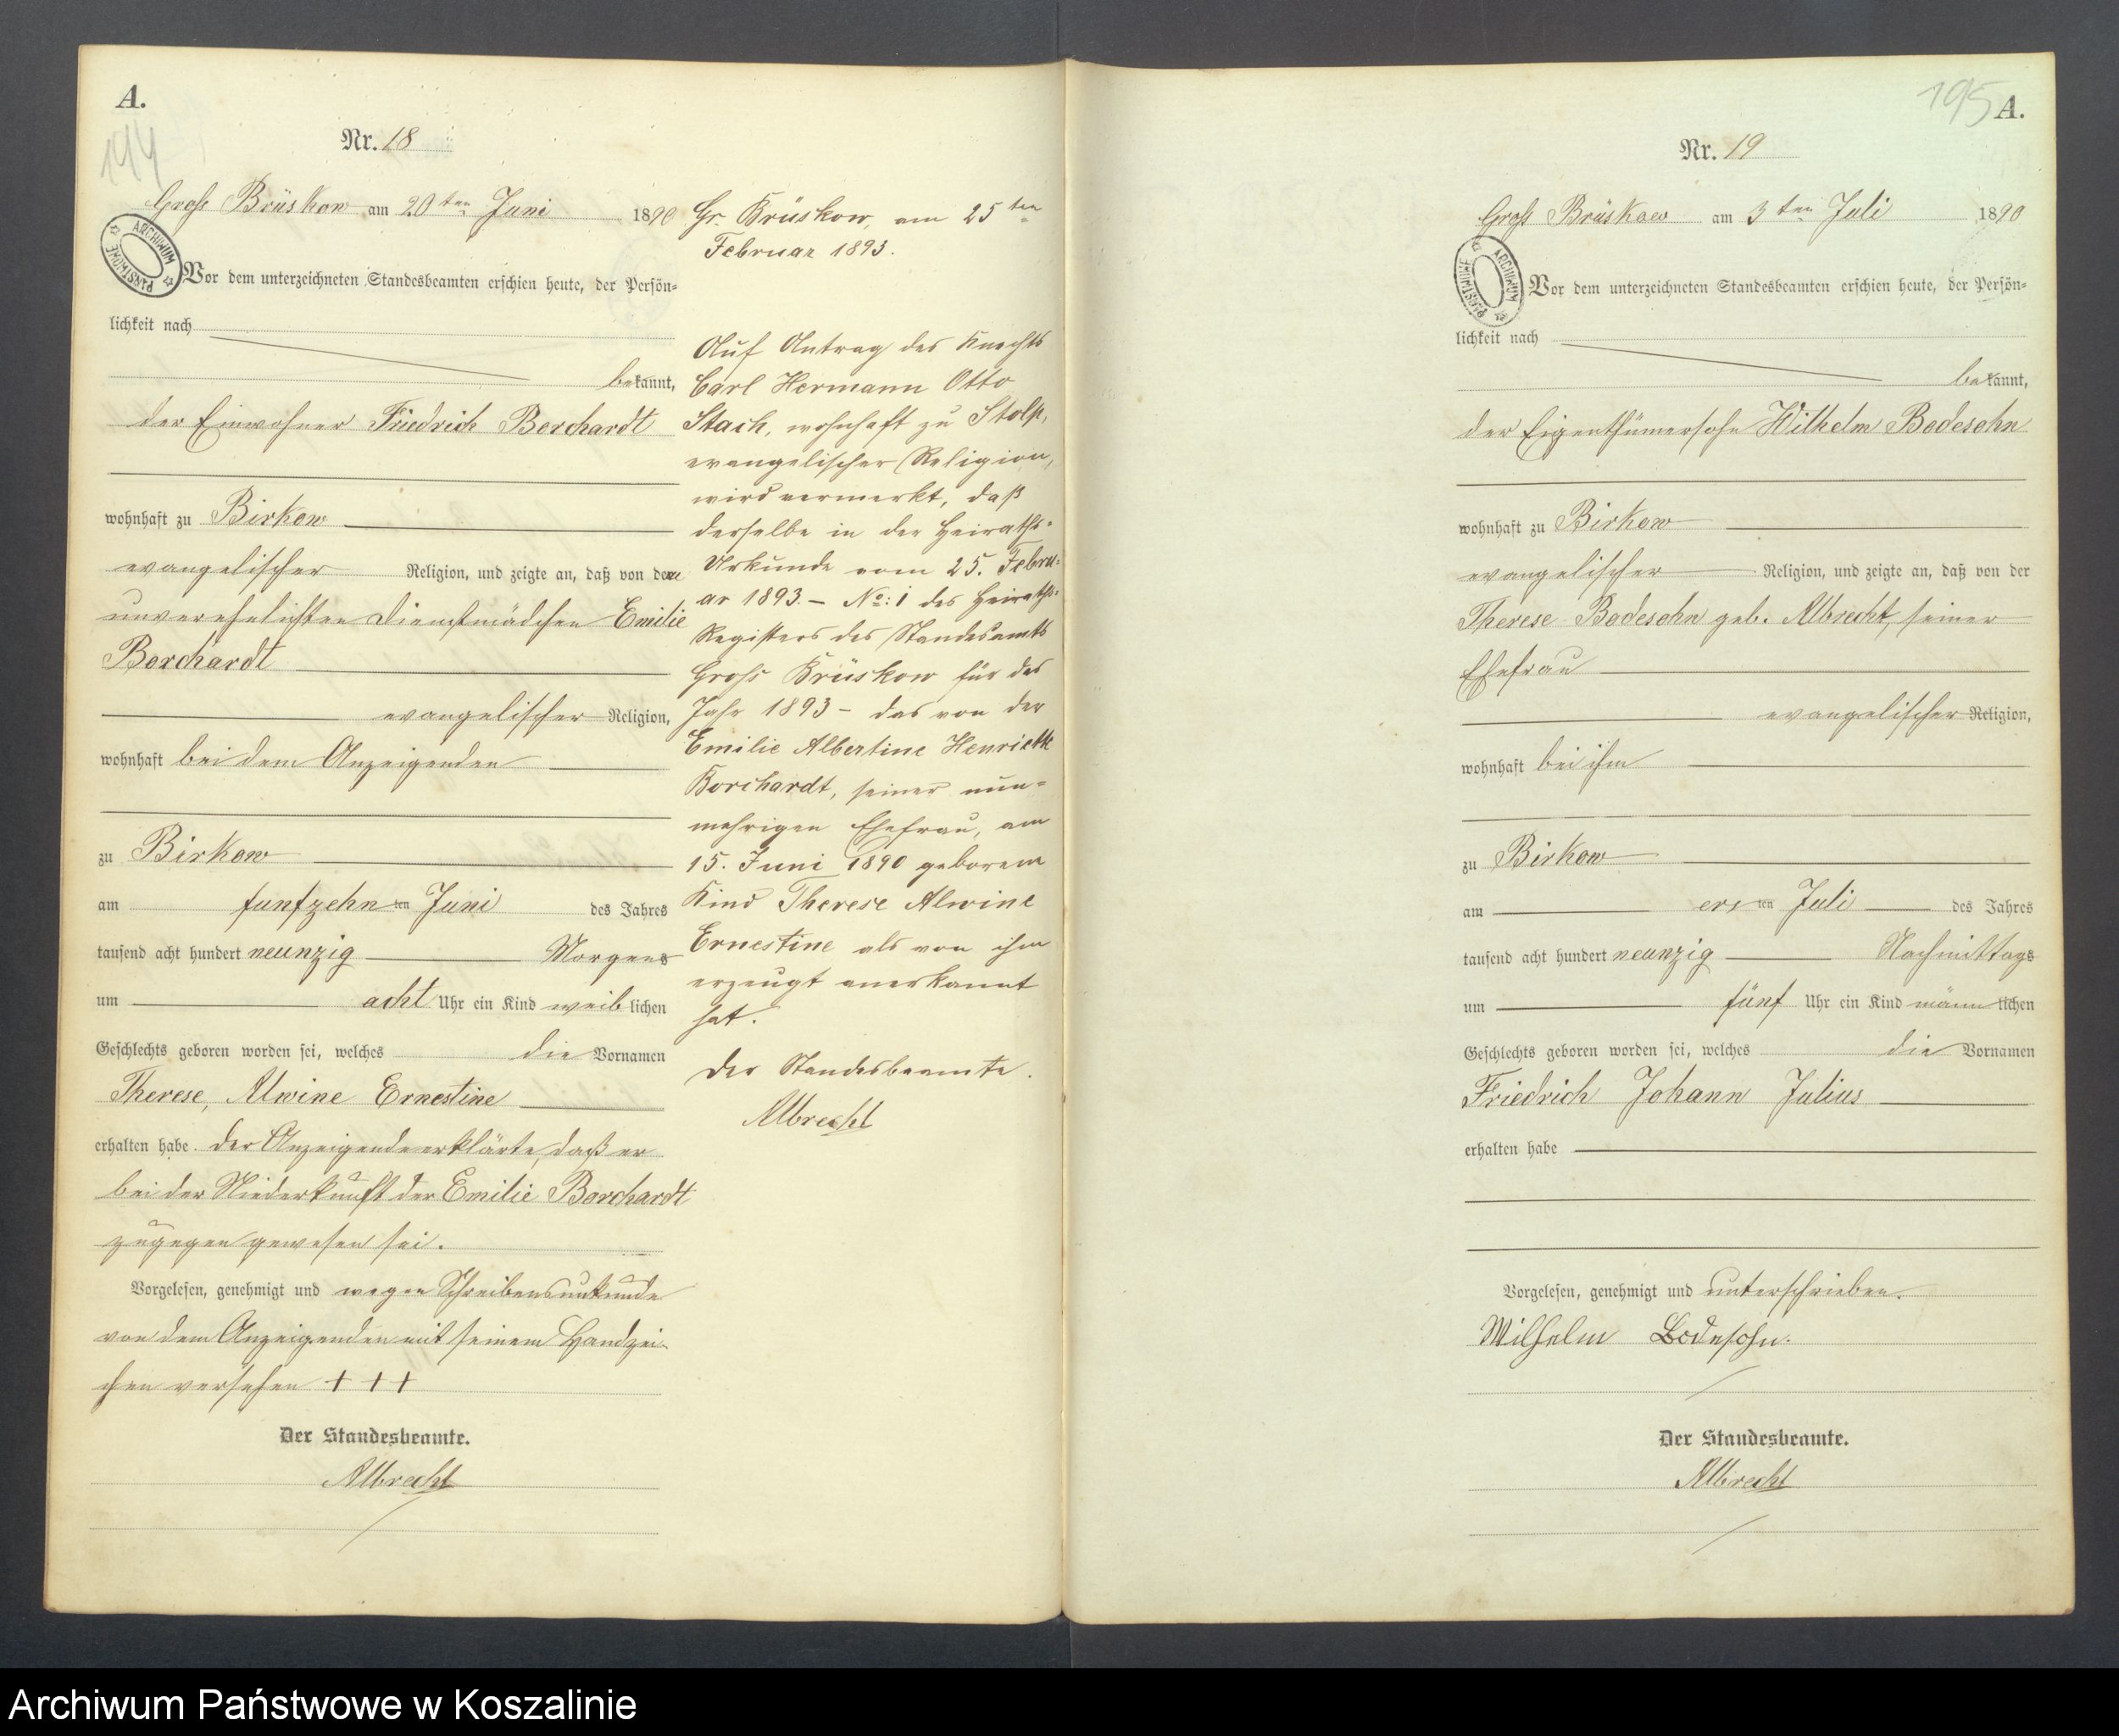 A.
194
Nr. 18
Gross Brüskow am 20ten Juni 1890
ARCHIWUM PAŃSTWOWE
Vor dem unterzeichneten Standesbeamten erschien heute, der Persön-
lichkeit nach
bekannt,
der Einwohner Friedrich Borchardt
wohnhaft zu Birkow
evangelischer Religion, und zeigte an, daß von der
unverehelichten Dienstmädchen Emilie
Borchardt
evangelischer Religion,
wohnhaft bei dem Anzeigenden
zu Birkow
am funfzehnten Juni des Jahres
tausend acht hundert neunzig Morgens
um acht Uhr ein Kind weiblichen
Geschlechts geboren worden sei, welches die Vornamen
Therese, Alwine Ernestine
erhalten habe. Der Anzeigende erklärte, daß er
bei der Niederkunft der Emilie Borchardt
zugegen gewesen sei.
Vorgelesen, genehmigt und wegen Schreibensunkunde
von dem Anzeigenden mit seinem Handzei-
chen versehen +++
Der Standesbeamte.
Albrecht
Gr. Brüskow, am 25ten
Februar 1893.
Auf Antrag des Knechts
Carl Hermann Otto
Stach, wohnhaft zu Stolp,
evangelischer Religion,
wird vermerkt, daß
derselbe in der Heiraths-
Urkunde vom 25. Febru-
ar 1893. – No: 1 des Heiraths-
Registers des Standesamts
Gross Brüskow für das
Jahr 1893 – das von der
Emilie Albertine Henriette
Borchardt, seiner nun-
mehrigen Ehefrau, am
15. Juni 1890 geborene
Kind Therese Alwine
Ernestine als von ihm
erzeugt anerkannt
hat.
Der Standesbeamte.
Albrecht
195
A.
Nr. 19
Gross Brüskow am 3ten Juli 1890
ARCHIWUM PAŃSTWOWE
Vor dem unterzeichneten Standesbeamten erschien heute, der Persön-
lichkeit nach
bekannt,
der Eigenthümersohn Wilhelm Bodesohn
wohnhaft zu Birkow
evangelischer Religion, und zeigte an, daß von der
Therese Bodesohn geb. Albrecht, seiner
Ehefrau
evangelischer Religion,
wohnhaft bei ihm
zu Birkow
am ersten Juli des Jahres
tausend acht hundert neunzig Nachmittags
um fünf Uhr ein Kind männlichen
Geschlechts geboren worden sei, welches die Vornamen
Friedrich Johann Julius
erhalten habe
Vorgelesen, genehmigt und unterschrieben.
Wilhelm Bodesohn.
Der Standesbeamte.
Albrecht
Archiwum Państwowe w Koszalinie